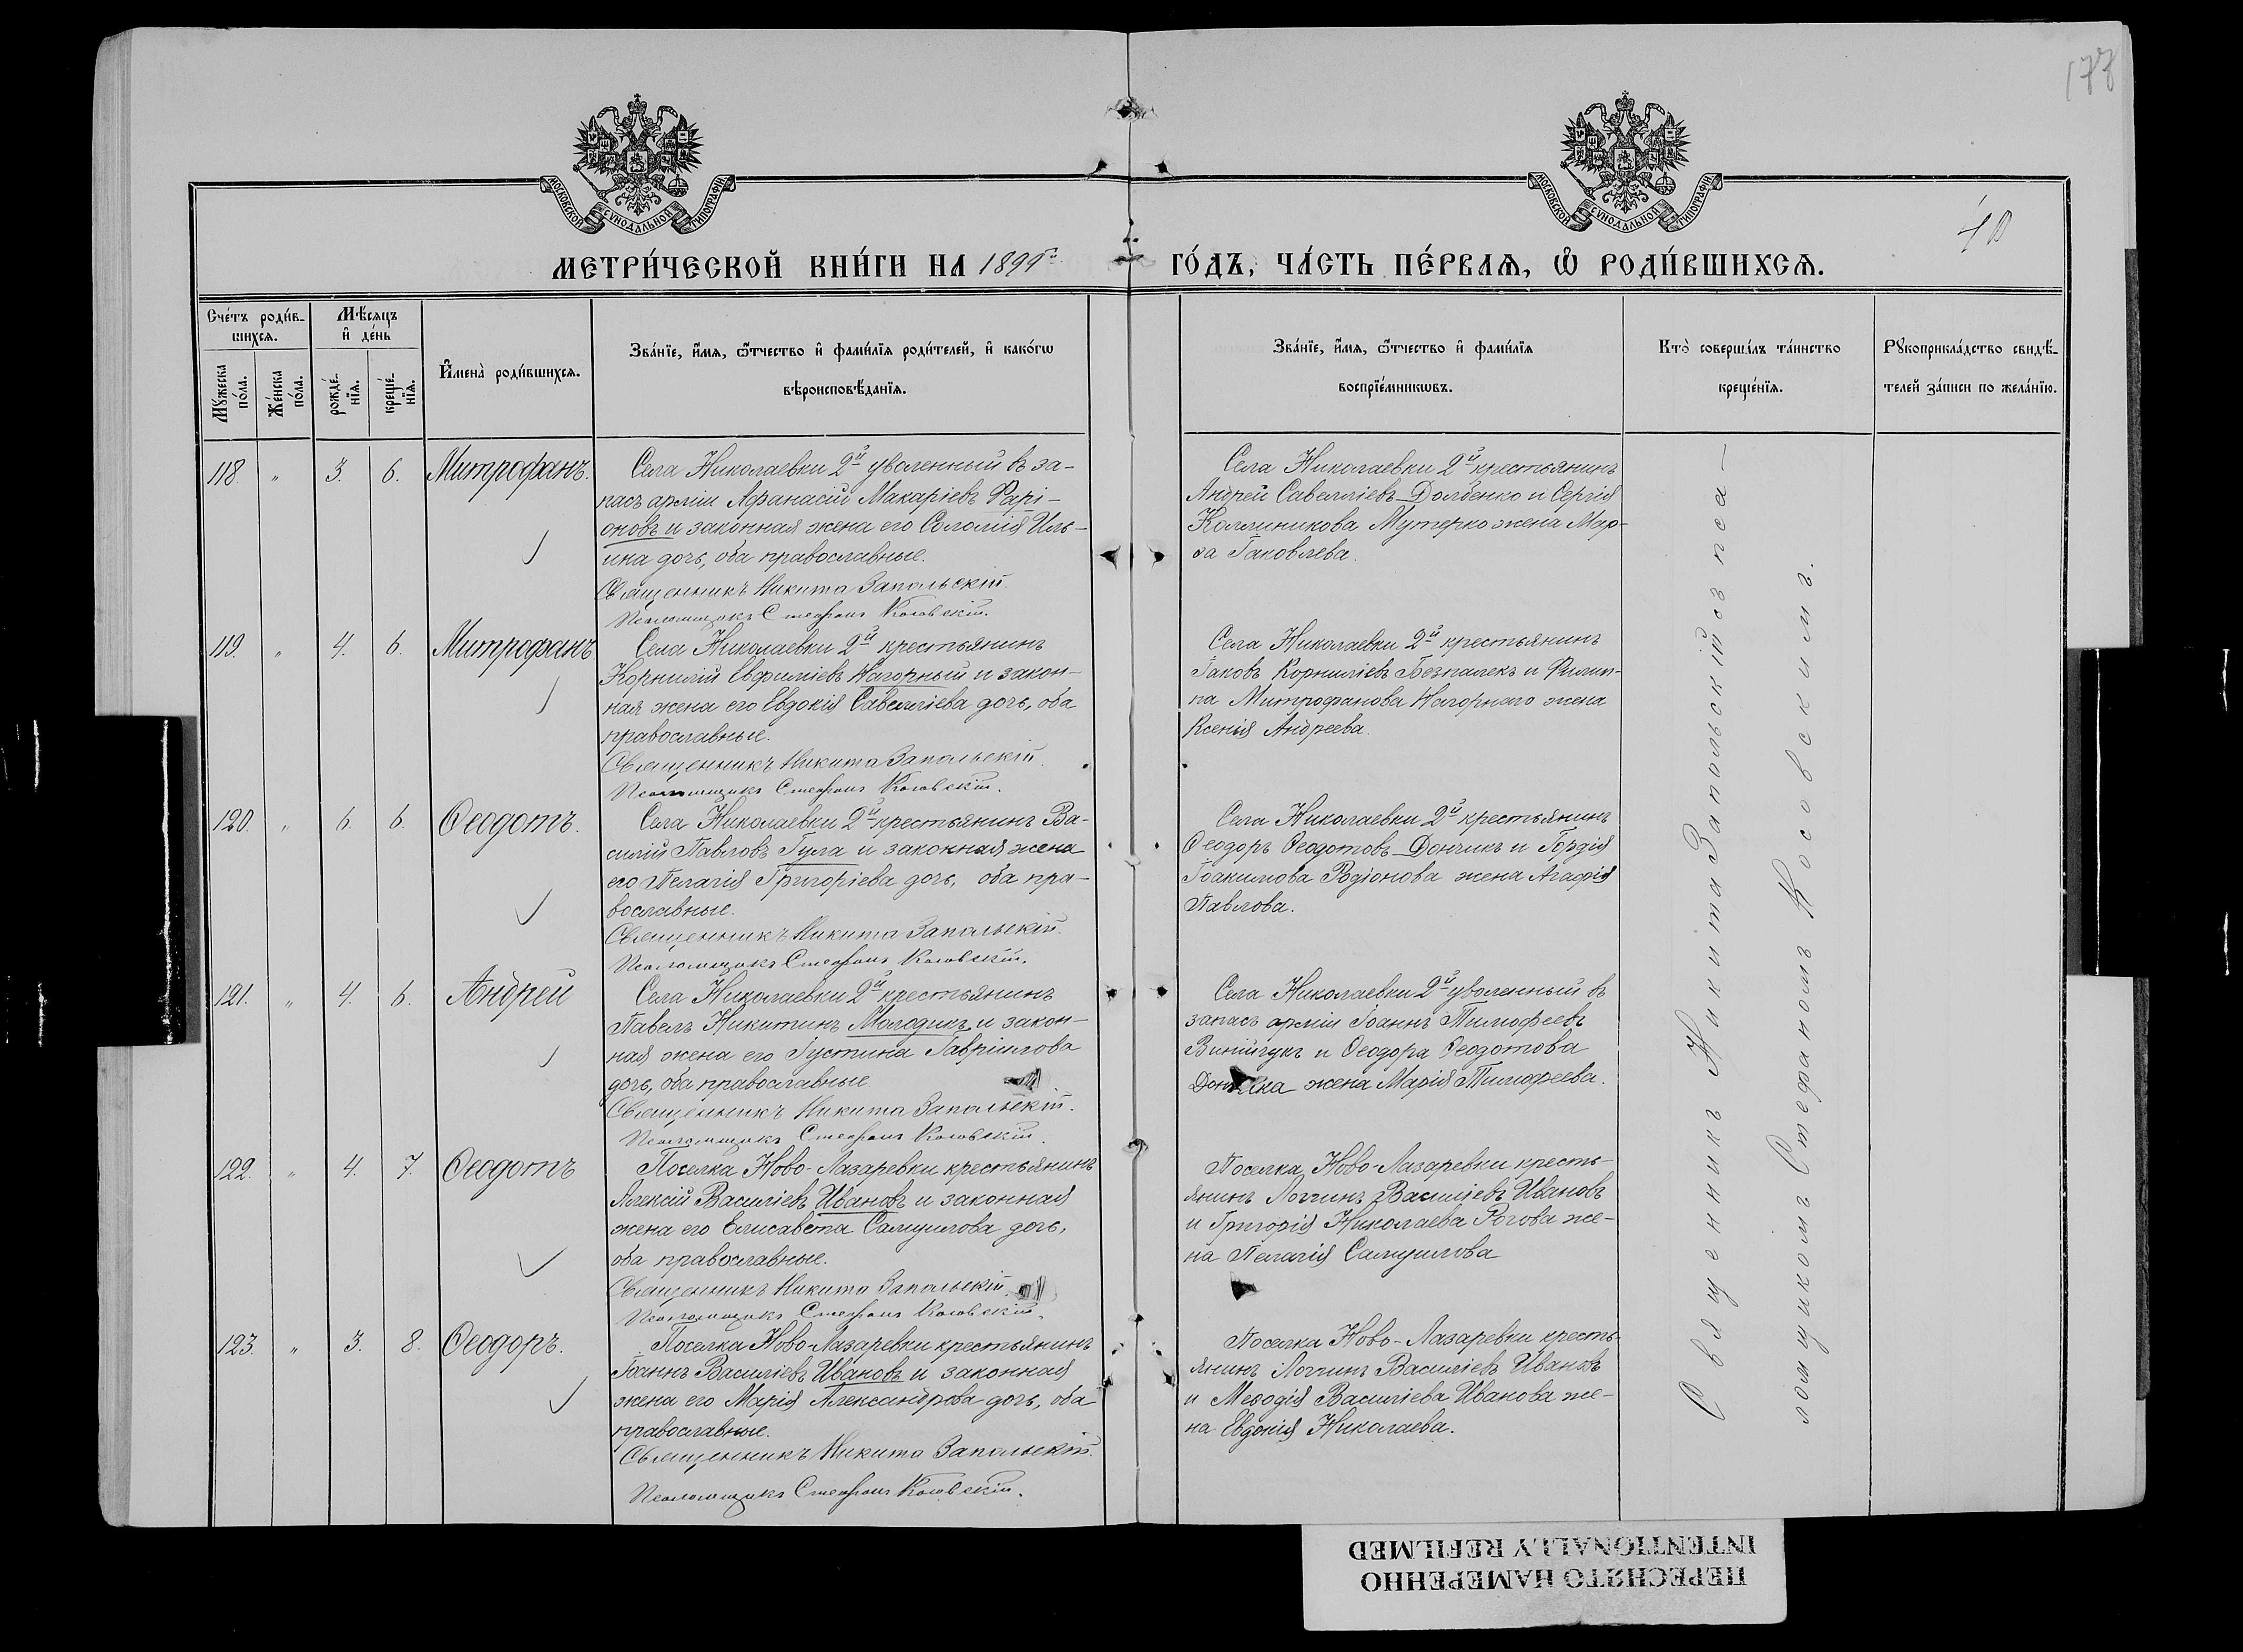 178
МОСКОВСКОЙ СѴНОДАЛЬНОЙ ТИПОГРАФІИ
МОСКОВСКОЙ СѴНОДАЛЬНОЙ ТИПОГРАФІИ
МЕТРИ́ЧЕСКОЙ КНИ́ГИ НА 1899 ГО́ДЪ, ЧА́СТЬ ПЕ́РВАѦ, Ѡ҆ РОДИ́ВШИХСѦ.
Сче́тъ роди́в-
шихсѧ.
Мѣ́сѧцъ
и҆ де́нь
Мꙋ́жеска по́ла.
Же́нска по́ла.
рожде́-
нїѧ.
креще́-
нїѧ.
И҆мена̀ роди́вшихсѧ.
Зва́нїе, и҆́мѧ, ѻ҆́тчество и҆ фами́лїѧ роди́телей, и҆ како́гѡ
вѣроисповѣ́данїѧ.
Зва́нїе, и҆́мѧ, ѻ҆́тчество и҆ фами́лїѧ
воспрїе́мникѡвъ.
Кто̀ соверша́лъ та́инство
креще́нїѧ.
Рꙋкоприкла́дство свидѣ́-
телей за́писи по жела́нїю.
118. " 3. 6. Митрофанъ.
Села Николаевки 2й уволенный въ за-
пасъ арміи Афанасій Макаріевъ Рарі-
оновъ и законная жена его Соломія Иль-
ина дочь, оба православные.
Священникъ Никита Запольскій.
Псаломщикъ Стефанъ Косовскій.
Села Николаевки 2й крестьянинъ
Андрей Савелліевъ Долбенко и Сергія
Каллиникова Мутерко жена Мар-
ѳа Іаковлева.
119. " 4. 6. Митрофанъ
Села Николаевки 2й крестьянинъ
Корнилій Евфиміевъ Нагорный и закон-
ная жена его Евдокія Савелліева дочь, оба
православные.
Священникъ Никита Запольскій.
Псаломщикъ Стефанъ Косовскій.
Села Николаевки 2й крестьянинъ
Іаковъ Корниліевъ Безпалекъ и Филип-
па Митрофанова Нагорнаго жена
Ксенія Андреева.
120. " 6. 6. Ѳеодотъ.
Села Николаевки 2й крестьянинъ Ва-
силій Павловъ Гула и законная жена
его Пелагія Григоріева дочь, оба пра-
вославные.
Священникъ Никита Запольскій.
Псаломщикъ Стефанъ Косовскій.
Села Николаевки 2й крестьянинъ
Ѳеодоръ Ѳеодотовъ Дончикъ и Гордія
Іоакимова Родіонова жена Агафія
Павлова.
121. " 4. 6. Андрей
Села Николаевки 2й крестьянинъ
Павелъ Никитинъ Молодикъ и закон-
ная жена его Іустина Гавріилова
дочь, оба православные.
Священникъ Никита Запольскій.
Псаломщикъ Стефанъ Косовскій.
Села Николаевки 2й уволенный въ
запасъ арміи Іоаннъ Тимофеевъ
Винничукъ и Ѳеодора Ѳеодотова
жена Марія Тимофеева.
122. " 4. 7. Ѳеодотъ
Поселка Ново-Лазаревки крестьянинъ
Алексій Василіевъ Ивановъ и законная
жена его Елисавета Самуилова дочь,
оба православные.
Священникъ Никита Запольскій.
Псаломщикъ Стефанъ Косовскій.
Поселка Ново-Лазаревки кресть-
янинъ Логгинъ Василіевъ Ивановъ
и Григорія Николаева Рогова же-
на Пелагія Самуилова
123. " 3. 8. Ѳеодоръ.
Поселка Ново-Лазаревки крестьянинъ
Іоаннъ Василіевъ Ивановъ и законная
жена его Марія Александрова дочь, оба
православные.
Священникъ Никита Запольскій.
Псаломщикъ Стефанъ Косовскій.
Поселка Ново-Лазаревки кресть-
янинъ Логгинъ Василіевъ Ивановъ
и Меѳодія Василіева Иванова же-
на Евдокія Николаева.
Священникъ Никита Запольскій съ пса-
ломщикомъ Стефаномъ Косовскимъ.
ПЕРЕСНЯТО НАМЕРЕННО
INTENTIONALLY REFILMED